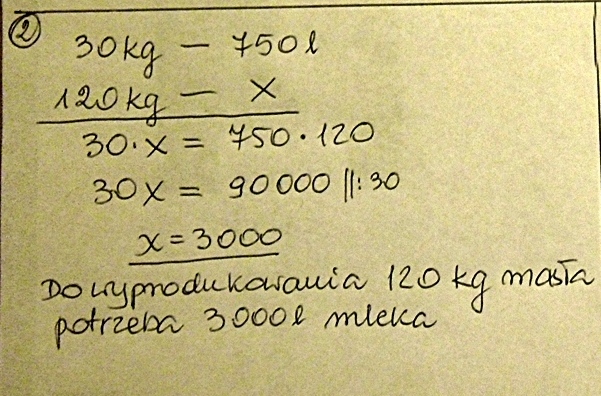 2
30kg - 750l
120kg - x
30·x = 750·120
30x = 90000 ||:30
x = 3000
Do wyprodukowania 120 kg masła
potrzeba 3000l mleka